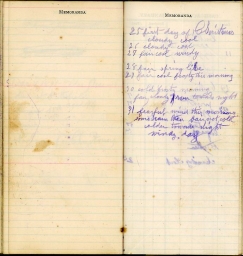 MEMORANDA
MEMORANDA
25 first day of Christmas
cloudy cool
26 cloudy cool
27 fair cool windy
28 fair spring like
29 fair cool frosty this morning
30 cold frosty morning
fair cloudy from night
31 fearful wind this morning
some rain then fair got cold
colder towards night
windy day